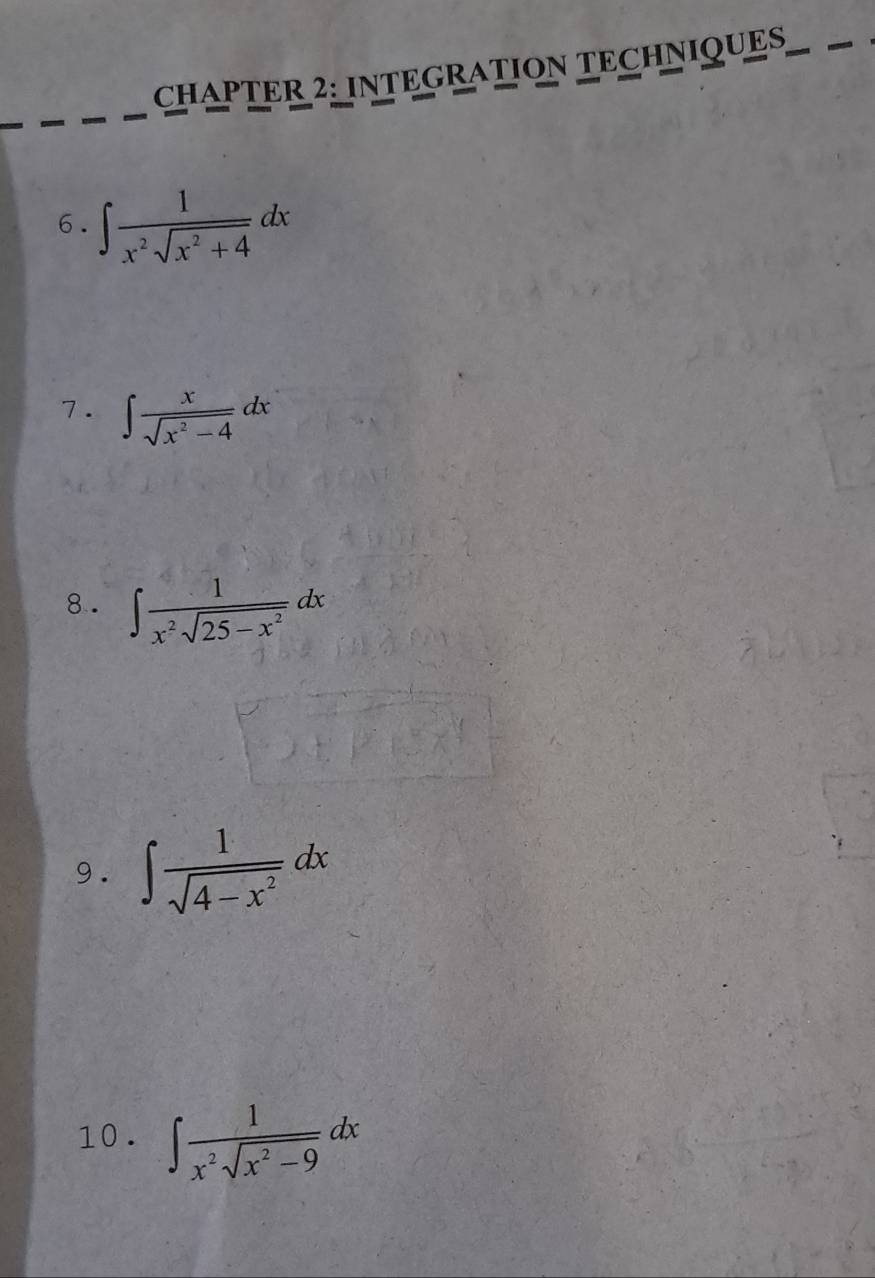 CHAPTER 2: INTEGRATION TECHNIQUES
6. ∫ 1/(x²√(x² + 4)) dx
7. ∫ x/√(x² − 4) dx
8. ∫ 1/(x²√(25 − x²)) dx
9. ∫ 1/√(4 − x²) dx
10. ∫ 1/(x²√(x² − 9)) dx